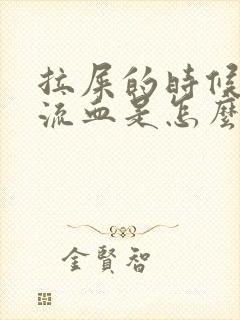 拉屎的時候
流血是怎麼
金賢智